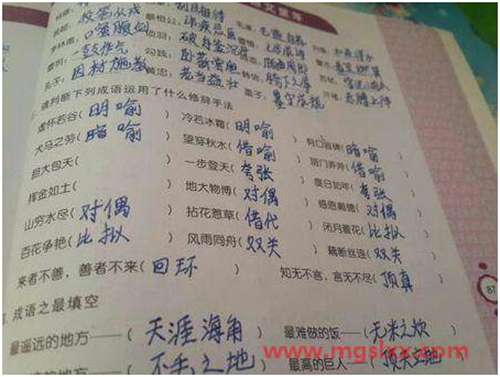 投笔从戎
口蜜腹剑
一鼓作气 破釜沉舟
孔子: 因材施教 勾践: 卧薪尝胆
黄忠: 老当益壮
请判断下列成语运用了什么修辞手法
虚怀若谷(明喻) 冷若冰霜(明喻) 有口皆碑(暗喻)
犬马之劳(暗喻) 望穿秋水(借喻) 班门弄斧(借喻)
胆大包天( 一步登天(夸张) 度日如年(夸张)
挥金如土( 地大物博(对偶) 感恩戴德(对偶)
山穷水尽(对偶) 拈花惹草(借代) 闭月羞花(比拟)
百花争艳(比拟) 风雨同舟(双关) 藕断丝连(双关)
来者不善,善者不来(回环) 知无不言,言无不尽(顶真)
成语之最填空
最遥远的地方——(天涯海角) 最难做的饭——(无米之炊)
的地方——(不毛之地) 最高的巨人——(顶天立地)
87
www.mgshx.com